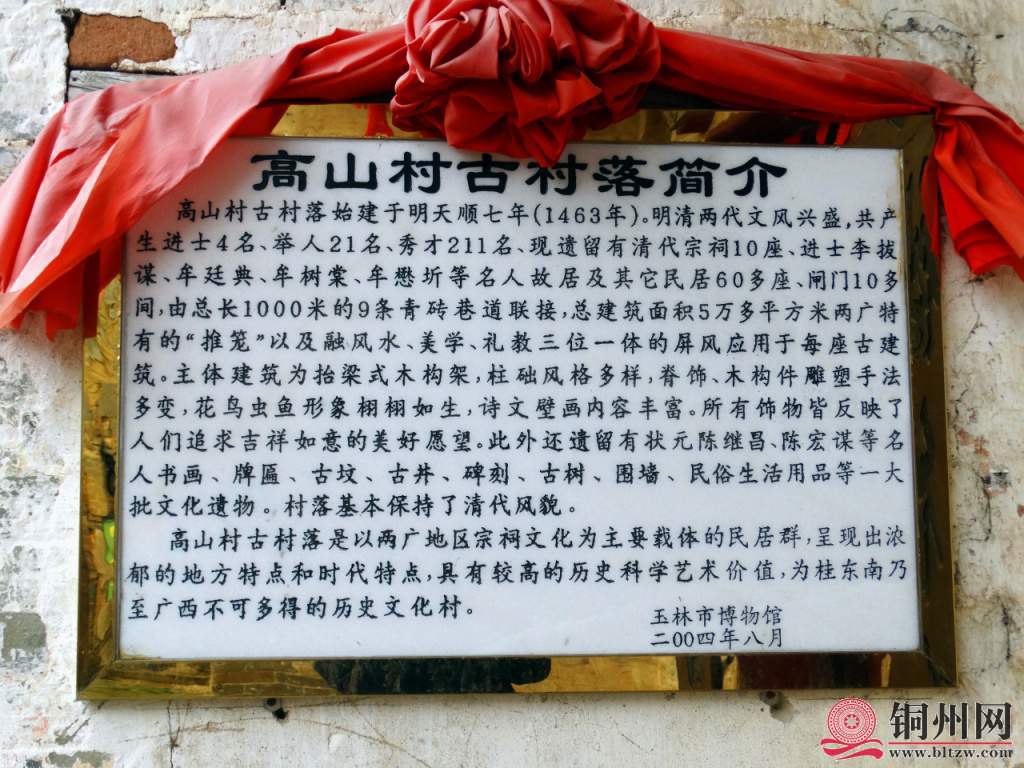 高山村古村落简介
高山村古村落始建于明天顺七年(1463年)。明清两代文风兴盛,共产
生进士4名、举人21名、秀才211名、现遗留有清代宗祠10座、进士李拔
谋、牟廷典、牟树棠、牟懋圻等名人故居及其它民居60多座、闸门10多
间,由总长1000米的9条青砖巷道联接,总建筑面积5万多平方米两广特
有的“推笼”以及融风水、美学、礼教三位一体的屏风应用于每座古建
筑。主体建筑为抬梁式木构架,柱础风格多样,脊饰、木构件雕塑手法
多变,花鸟虫鱼形象栩栩如生,诗文壁画内容丰富。所有饰物皆反映了
人们追求吉祥如意的美好愿望。此外还遗留有状元陈继昌、陈宏谋等名
人书画、牌匾、古坟、古井、碑刻、古树、围墙、民俗生活用品等一大
批文化遗物。村落基本保持了清代风貌。
高山村古村落是以两广地区宗祠文化为主要载体的民居群,呈现出浓
郁的地方特点和时代特点,具有较高的历史科学艺术价值,为桂东南乃
至广西不可多得的历史文化村。
玉林市博物馆
二00四年八月
铜州网
www.bltzw.com